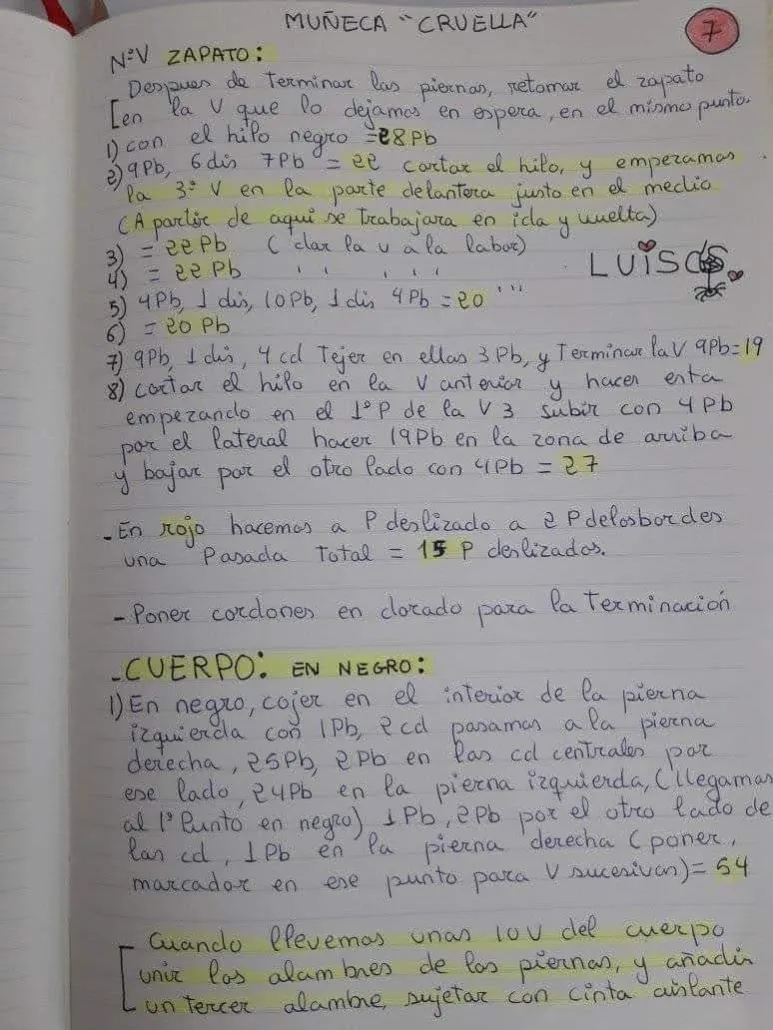 MUÑECA "CRUELLA"
7
NºV ZAPATO:
Despues de Terminar las piernas, retomar el zapato
[en la V que lo dejamos en espera, en el mismo punto.
1) con el hilo negro = 28Pb
2) 9Pb, 6 dis 7Pb = 22 cortar el hilo, y empezamos
la 3ª V en la parte delantera justo en el medio
(A partir de aqui se trabajara en ida y vuelta)
3) = 22 Pb ( dar la v a la labor)
4) = 22 Pb ' ' ' ' '
5) 4Pb, 1 dis, 10Pb, 1 dis 4Pb = 20 ' ' '
LUISCS
6) = 20 Pb
7) 9Pb, 1 dis, 4 cd Tejer en ellas 3 Pb, y Terminar la V 9Pb=19
8) cortar el hilo en la V anterior y hacer esta
empezando en el 1º P de la V 3 subir con 4 Pb
por el lateral hacer 19Pb en la zona de arriba
y bajar por el otro lado con 4Pb = 27
- En rojo hacemos a P deslizado a 2 P delosbordes
una Pasada Total = 15 P deslizados.
- Poner cordones en dorado para la Terminación
- CUERPO: EN NEGRO:
1) En negro, cojer en el interior de la pierna
izquierda con 1Pb, 2 cd pasamos a la pierna
derecha, 25Pb, 2Pb en las cd centrales por
ese lado, 24Pb en la pierna izquierda, (llegamos
al 1º Punto en negro) 1Pb, 2Pb por el otro lado de
las cd, 1Pb en la pierna derecha (poner,
marcador en ese punto para V sucesivas) = 54
[Cuando llevemos unas 10V del cuerpo
unir los alambres de las piernas, y añadir
un tercer alambre, sujetar con cinta aislante